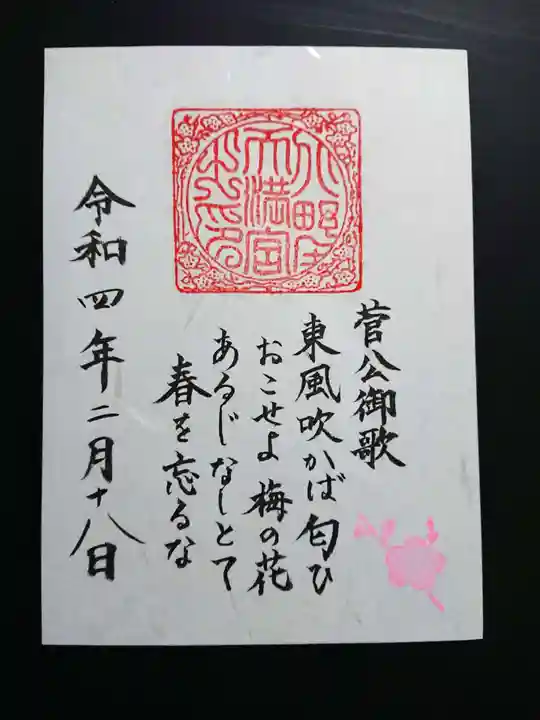 八野庄
天満宮
之印
菅公御歌
東風吹かば匂ひ
おこせよ梅の花
あるじなしとて
春を忘るな
令和四年二月十八日